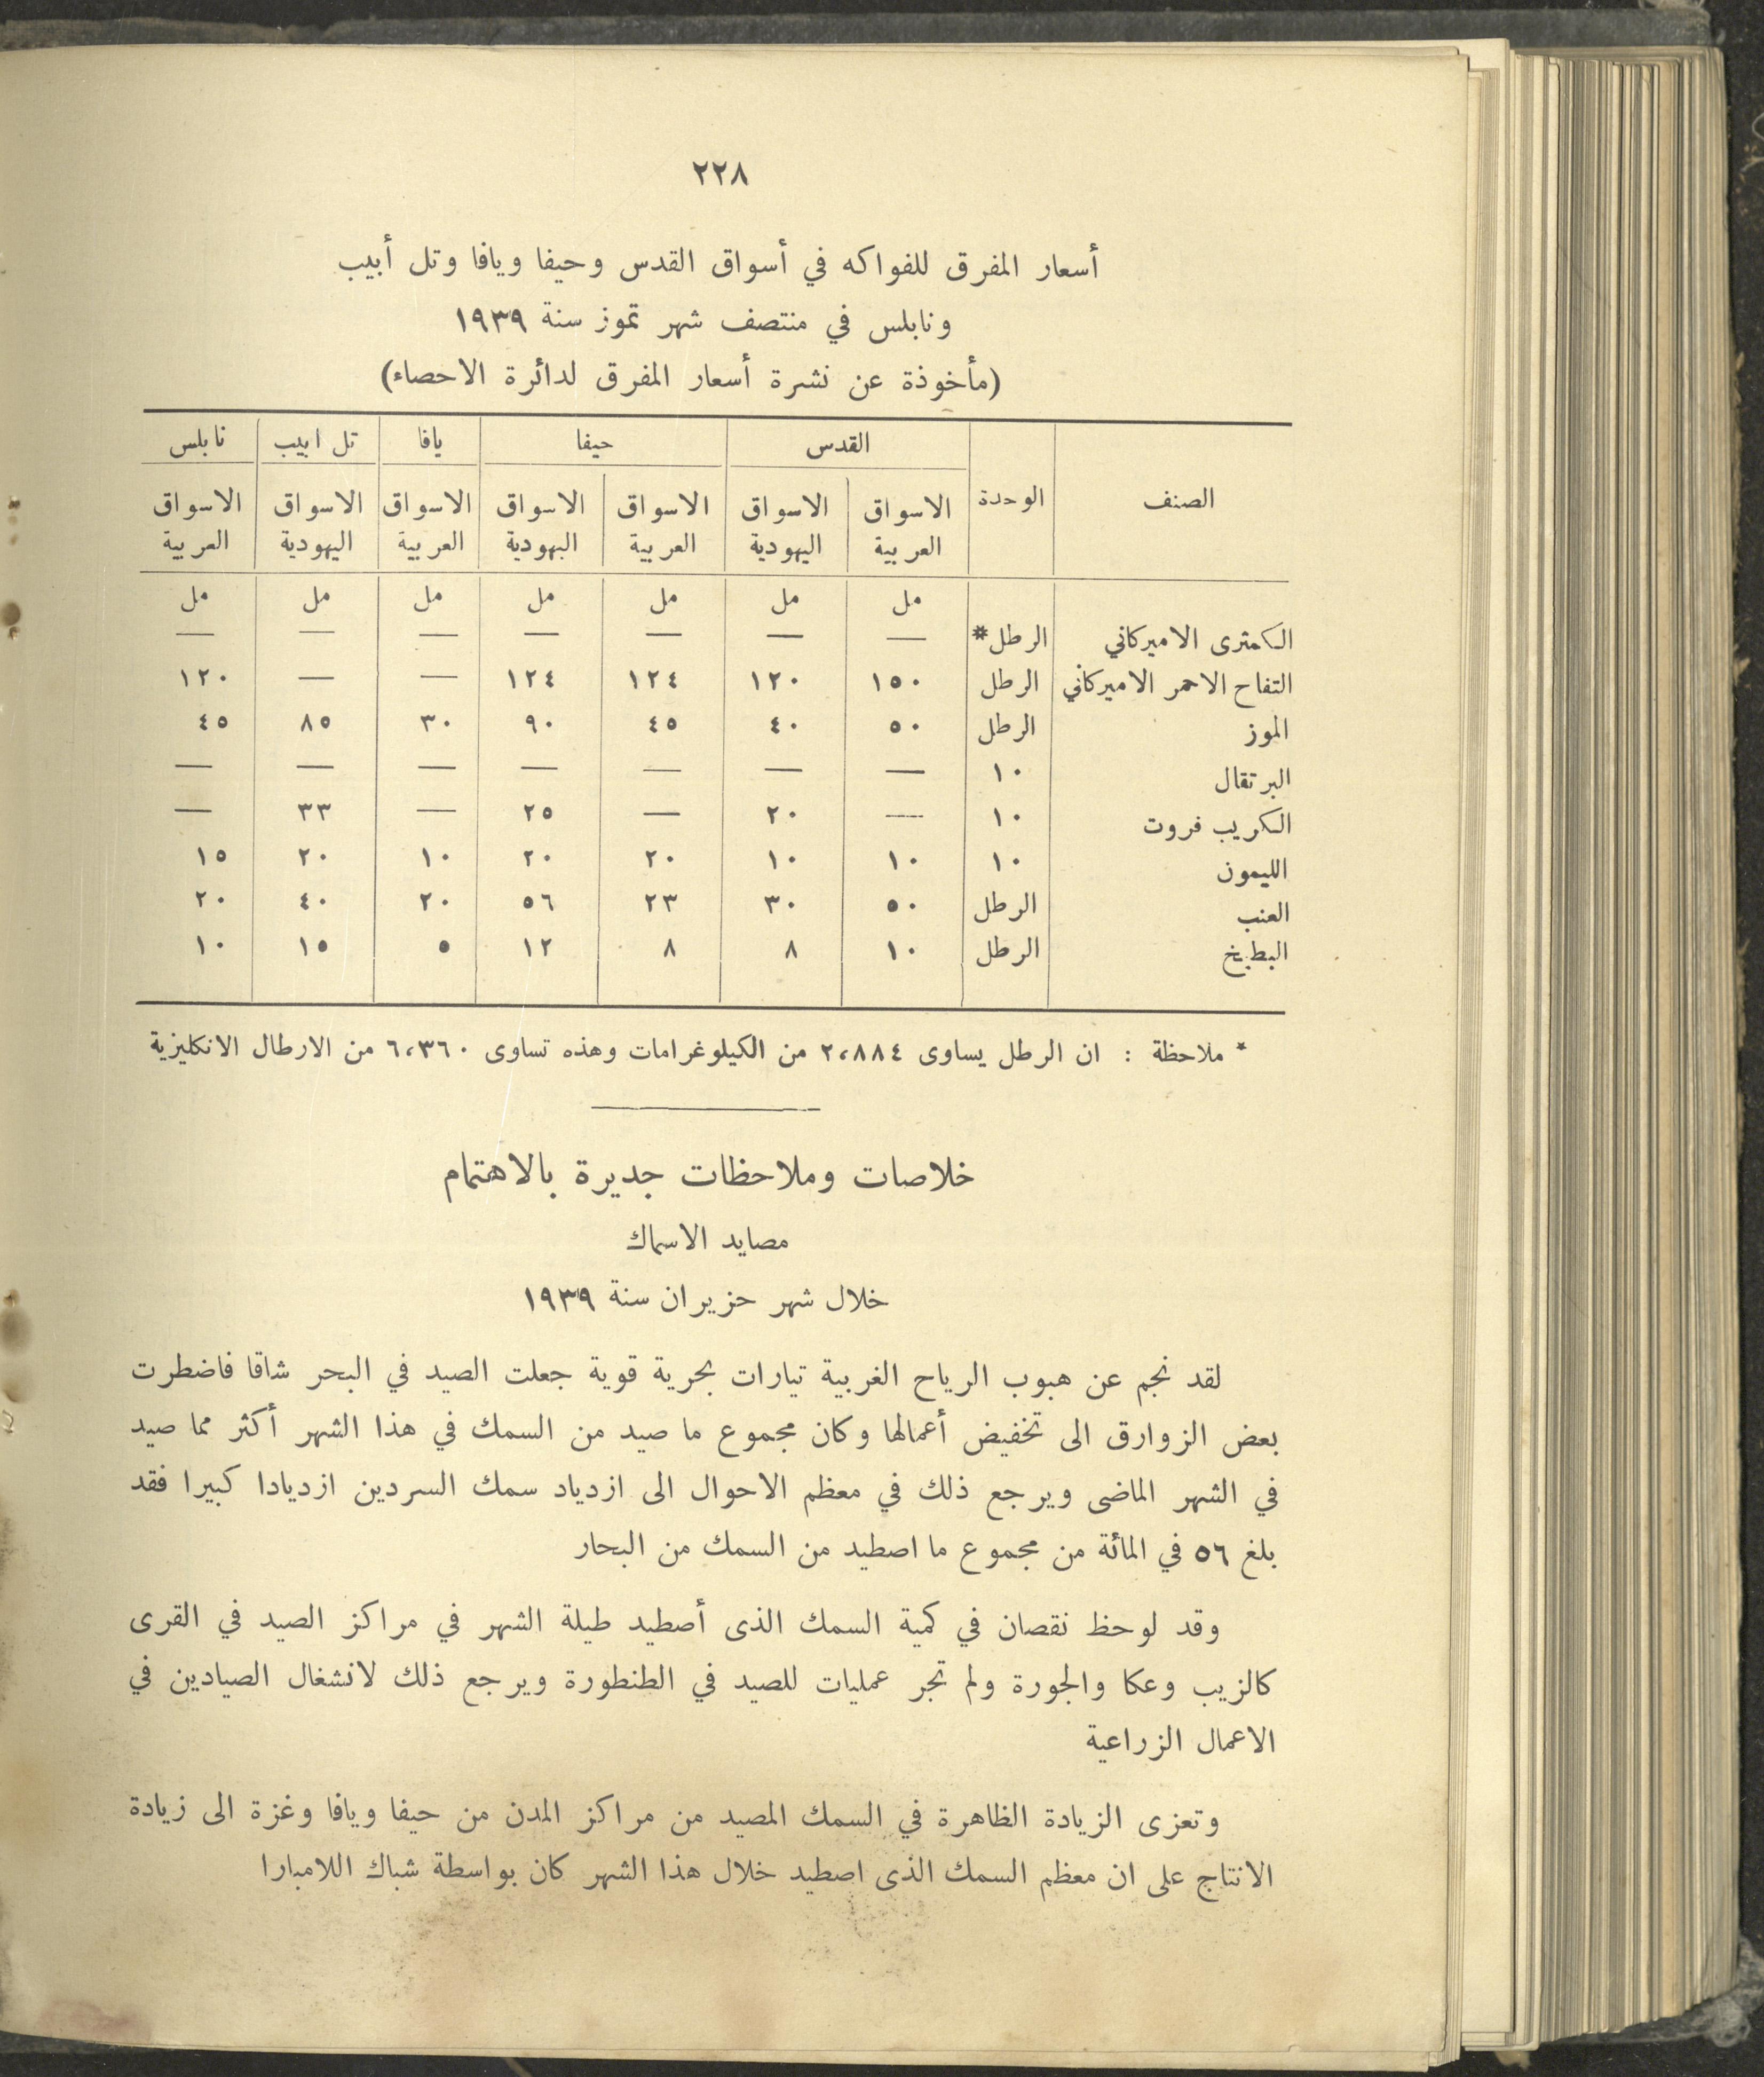 ٢٢٨
أسعار المفرق للفواكه في أسواق القدس وحيفا ويافا وتل أبيب
ونابلس في منتصف شهر تموز سنة ١٩٣٩
(مأخوذة عن نشرة أسعار المفرق لدائرة الاحصاء)
الصنف الوحدة القدس حيفا يافا تل ابيب نابلس
الاسواق الاسواق الاسواق الاسواق الاسواق الاسواق الاسواق
العربية اليهودية العربية اليهودية العربية اليهودية العربية
مل مل مل مل مل مل مل
الكمثرى الاميركاني الرطل* — — — — — — —
التفاح الاحمر الاميركاني الرطل ١٥٠ ١٢٠ ١٢٤ ١٢٤ — — ١٢٠
الموز الرطل ٥٠ ٤٠ ٤٥ ٩٠ ٣٠ ٨٥ ٤٥
البرتقال ١٠ — — — — — — —
الكريب فروت ١٠ — ٢٠ — ٢٥ — ٣٣ —
الليمون ١٠ ١٠ ١٠ ٢٠ ٢٠ ١٠ ٢٠ ١٥
العنب الرطل ٥٠ ٣٠ ٢٣ ٥٦ ٢٠ ٤٠ ٢٠
البطيخ الرطل ١٠ ٨ ٨ ١٢ ٥ ١٥ ١٠
* ملاحظة : ان الرطل يساوى ٢،٨٨٤ من الكيلوغرامات وهذه تساوى ٦،٣٦٠ من الارطال الانكليزية
خلاصات وملاحظات جديرة بالاهتمام
مصايد الاسماك
خلال شهر حزيران سنة ١٩٣٩
لقد نجم عن هبوب الرياح الغربية تيارات بحرية قوية جعلت الصيد في البحر شاقا فاضطرت
بعض الزوارق الى تخفيض أعمالها وكان مجموع ما صيد من السمك في هذا الشهر أكثر مما صيد
في الشهر الماضى ويرجع ذلك في معظم الاحوال الى ازدياد سمك السردين ازديادا كبيرا فقد
بلغ ٥٦ في المائة من مجموع ما اصطيد من السمك من البحار
وقد لوحظ نقصان في كمية السمك الذى أصطيد طيلة الشهر في مراكز الصيد في القرى
كالزيب وعكا والجورة ولم تجر عمليات للصيد في الطنطورة ويرجع ذلك لانشغال الصيادين في
الاعمال الزراعية
وتعزى الزيادة الظاهرة في السمك المصيد من مراكز المدن من حيفا ويافا وغزة الى زيادة
الانتاج على ان معظم السمك الذى اصطيد خلال هذا الشهر كان بواسطة شباك اللامبارا